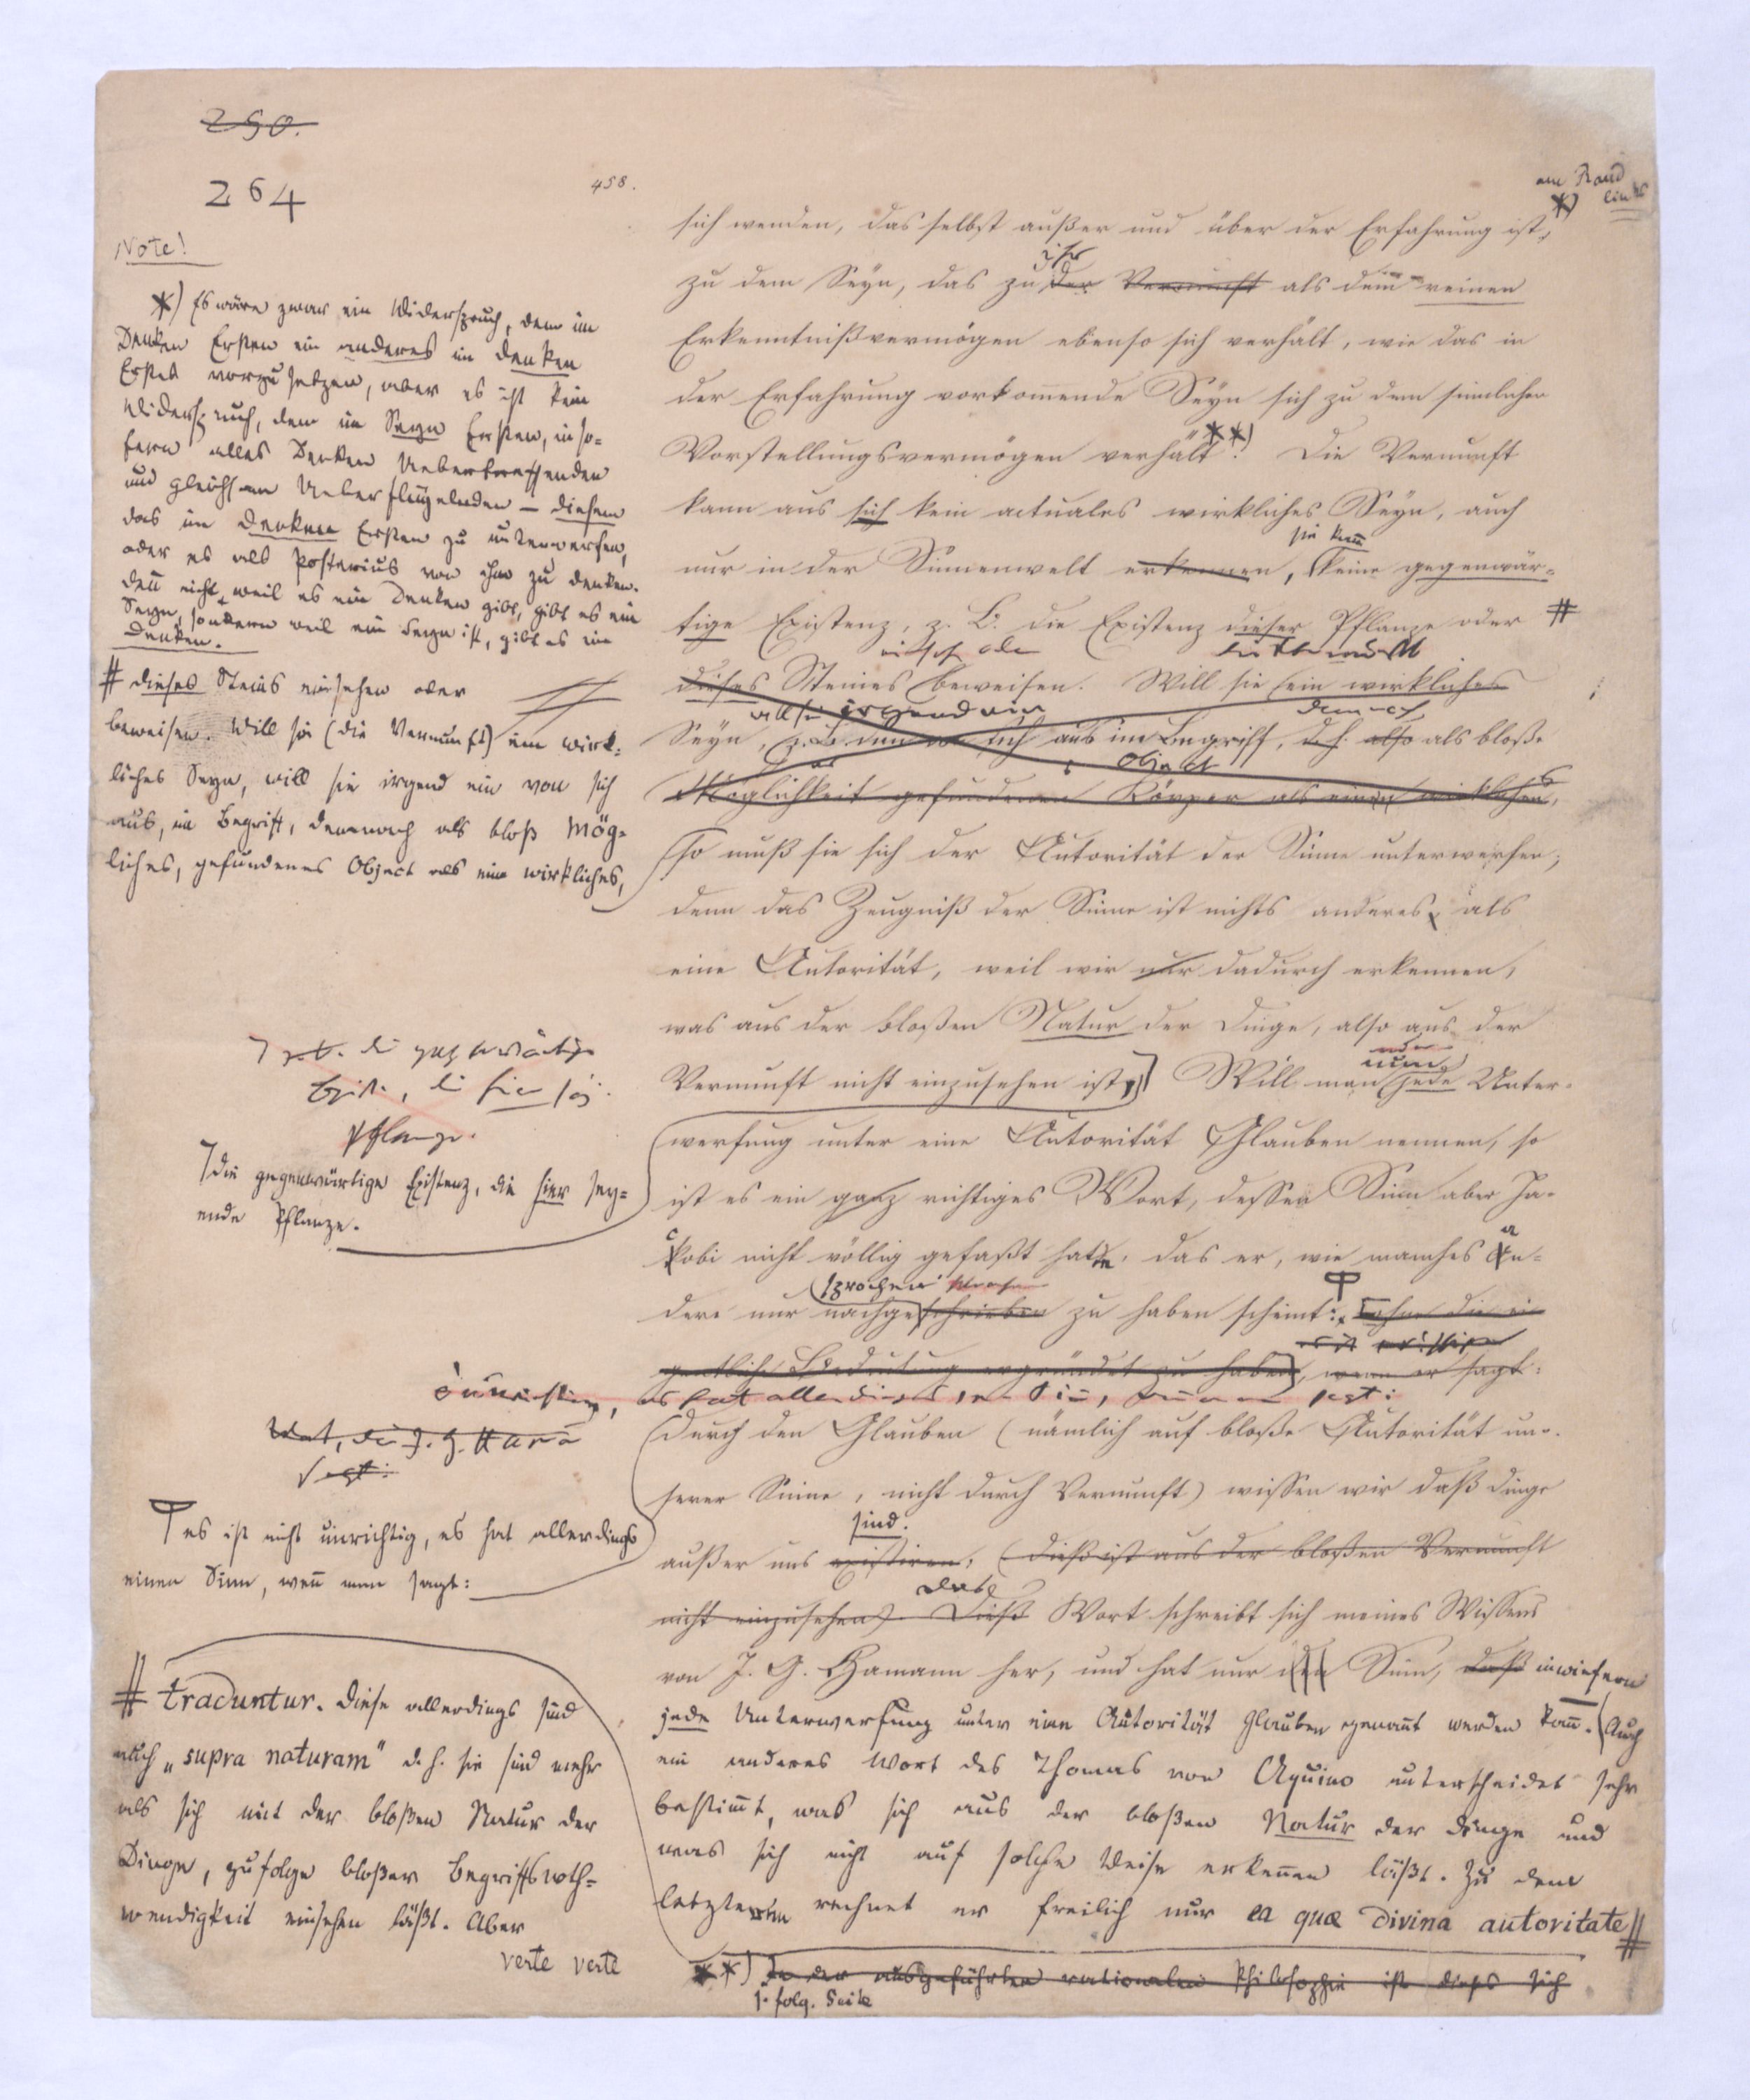 250.
264
458.
am Rand
links
Note!
*) Es wäre zwar ein Widerspruch, dem im
Denken Ersten ein anderes im Denken
Erstes vorzusetzen, aber es ist kein
Widerspruch, dem im Seyn Ersten, inso-
fern alles Denken Uebertreffenden
und gleichsam Ueberflügelnden – diesem
das im Denken Ersten zu unterwerfen,
oder es als Posterius von ihm zu denken.
Deñ nicht, weil es ein Denken gibt, gibt es ein
Seyn, sondern weil ein Seyn ist, gibt es ein
Denken.
# dieses Steins einsehen oder
beweisen. Will sie (die Vernunft) ein wirk-
liches Seyn, will sie irgend ein von sich
aus, im Begriff, demnach als bloß mög-
liches, gefundenes Object als ein wirkliches,
z.B. die gegenwärtige
Exist., die hier sey.
Pflanze.
die gegenwärtige Existenz, die hier sey-
ende Pflanze.
J. G. Hamañ
sagt:
es ist nicht unrichtig, es hat allerdings
einen Sinn, weñ man sagt:
# traduntur. Diese allerdings sind
auch „supra naturam" d.h. sie sind mehr
als sich mit der bloßen Natur der
Dinge, zufolge bloßer Begriffsnoth-
wendigkeit einsehen läßt. Aber
verte verte
sich wenden, das selbst außer und über der Erfahrung ist, *)
ihr
zu dem Seyn, das zu der Vernunft als dem reinen
Erkenntnißvermögen ebenso sich verhält, wie das in
der Erfahrung vorkom̄ende Seyn sich zu dem sinnlichen
Vorstellungsvermögen verhält **). Die Vernunft
kann aus sich kein actuales wirkliches Seyn, auch
sie kañ
nur in der Sinnenwelt erkennen, keine gegenwär-
tige Existenz, z. B. die Existenz dieser Pflanze oder #
dieses Steines beweisen. Will sie ein wirkliches
will sie irgend ein demnach
Seyn, sich aus im Begriff, d.h. also als bloße
Object
Möglichkeit gefundenen Körper als einen wirklichen,
so muß sie sich der Autorität der Sinne unterwerfen;
denn das Zeugniß der Sinne ist nichts anderes, als
eine Autorität, weil wir nur dadurch erkennen,
was aus der bloßen Natur der Dinge, also aus der
nun
Vernunft nicht einzusehen ist.] Will man jede Unter-
werfung unter eine Autorität Glauben nennen, so
ist es ein ganz richtiges Wort, dessen Sinn aber Ja-
cobi nicht völlig gefaßt hatte, das er, wie manches an-
sprochen
dere nur nachgeschrieben zu haben scheint: ohne die ei-
gentliche Bedeutung ergründet zu haben, wenn er sagt:
unrichtig, es hat allerdings einen Siñ, sagt:
durch den Glauben (nämlich auf bloße Autorität un-
serer Sinne, nicht durch Vernunft) wissen wir daß Dinge
sind.
außer uns existiren; (dieß ist aus der bloßen Vernunft
nicht einzusehen). Dieß Wort schreibt sich meines Wissens
von J. G. Hamann her, und hat nur den Sinn, daß inwiefern
jede Unterwerfung unter eine Autorität Glauben genañt werden kañ. Auch
ein anderes Wort des Thomas von Aquino unterscheidet sehr
bestim̄t, was sich aus der bloßen Natur der Dinge und
was sich nicht auf solche Weise erkeñen läßt. Zu dem
letzteren rechnet er freilich nur ea quæ divina autoritate #
**) In der ausgeführten rationalen Philosophie ist dieses sich
s. folg. Seite